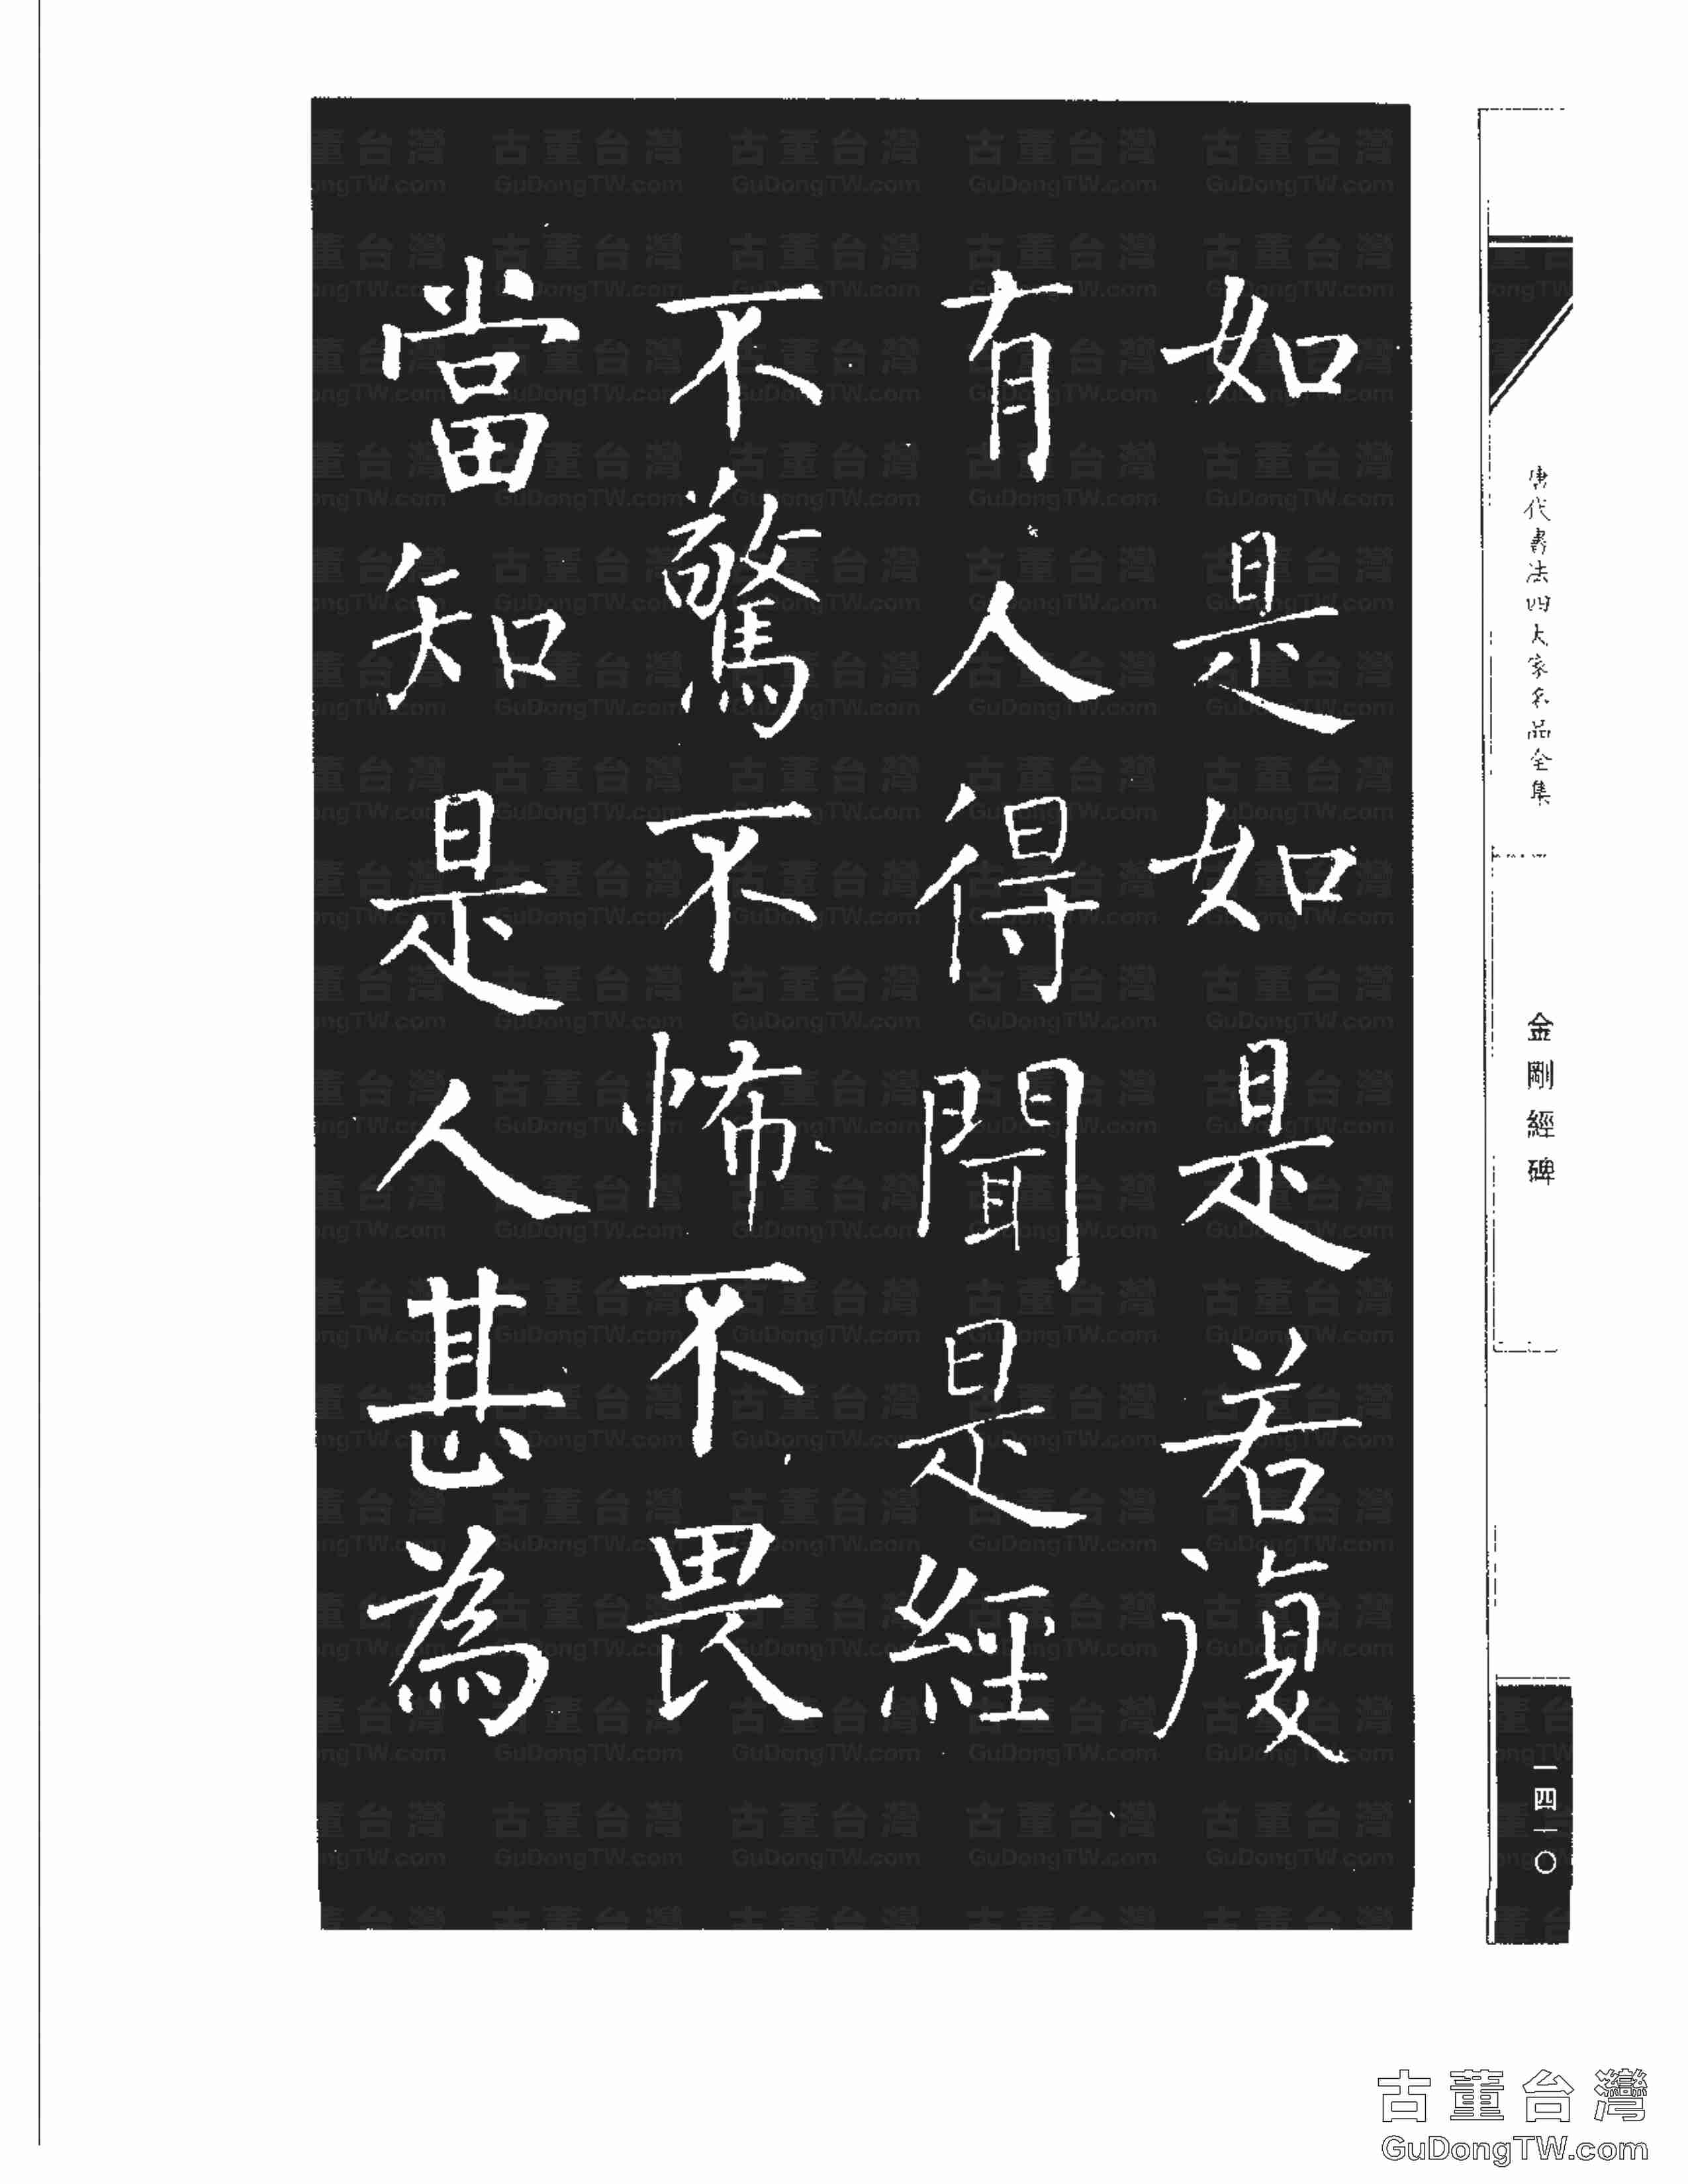 如是如是若復
有人得聞是經
不驚不怖不畏
當知是人甚為
唐代書法四大家名品全集
金剛經碑
一四一〇
古董台灣
GuDongTW.com